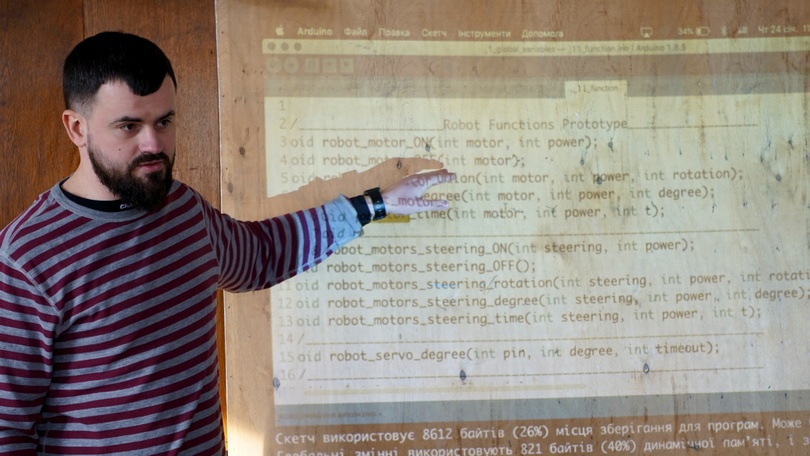 Arduino Файл Правка Скетч Інструменти Допомога 34% Чт 24 січ.
_1_global_variables — _11_function.ino | Arduino 1.8.5
_11_function
1
2 /____________________Robot Functions Prototype____________________
3 oid robot_motor_ON(int motor, int power);
4 oid robot_motor_OFF(int motor);
5 oid (int motor, int power, int rotation);
degree(int motor, int power, int degree);
time(int motor, int power, int t);
oid robot_motors_steering_ON(int steering, int power);
oid robot_motors_steering_OFF();
11 oid robot_motors_steering_rotation(int steering, int power, int rotati
12 oid robot_motors_steering_degree(int steering, int power, int degree);
13 oid robot_motors_steering_time(int steering, int power, int t);
14 /
15 oid robot_servo_degree(int pin, int degree, int timeout);
16 /
Скетч використовує 8612 байтів (26%) місця зберігання для програм. Може
Глобальні змінні використовують 821 байтів (40%) динамічної пам'яті, і з